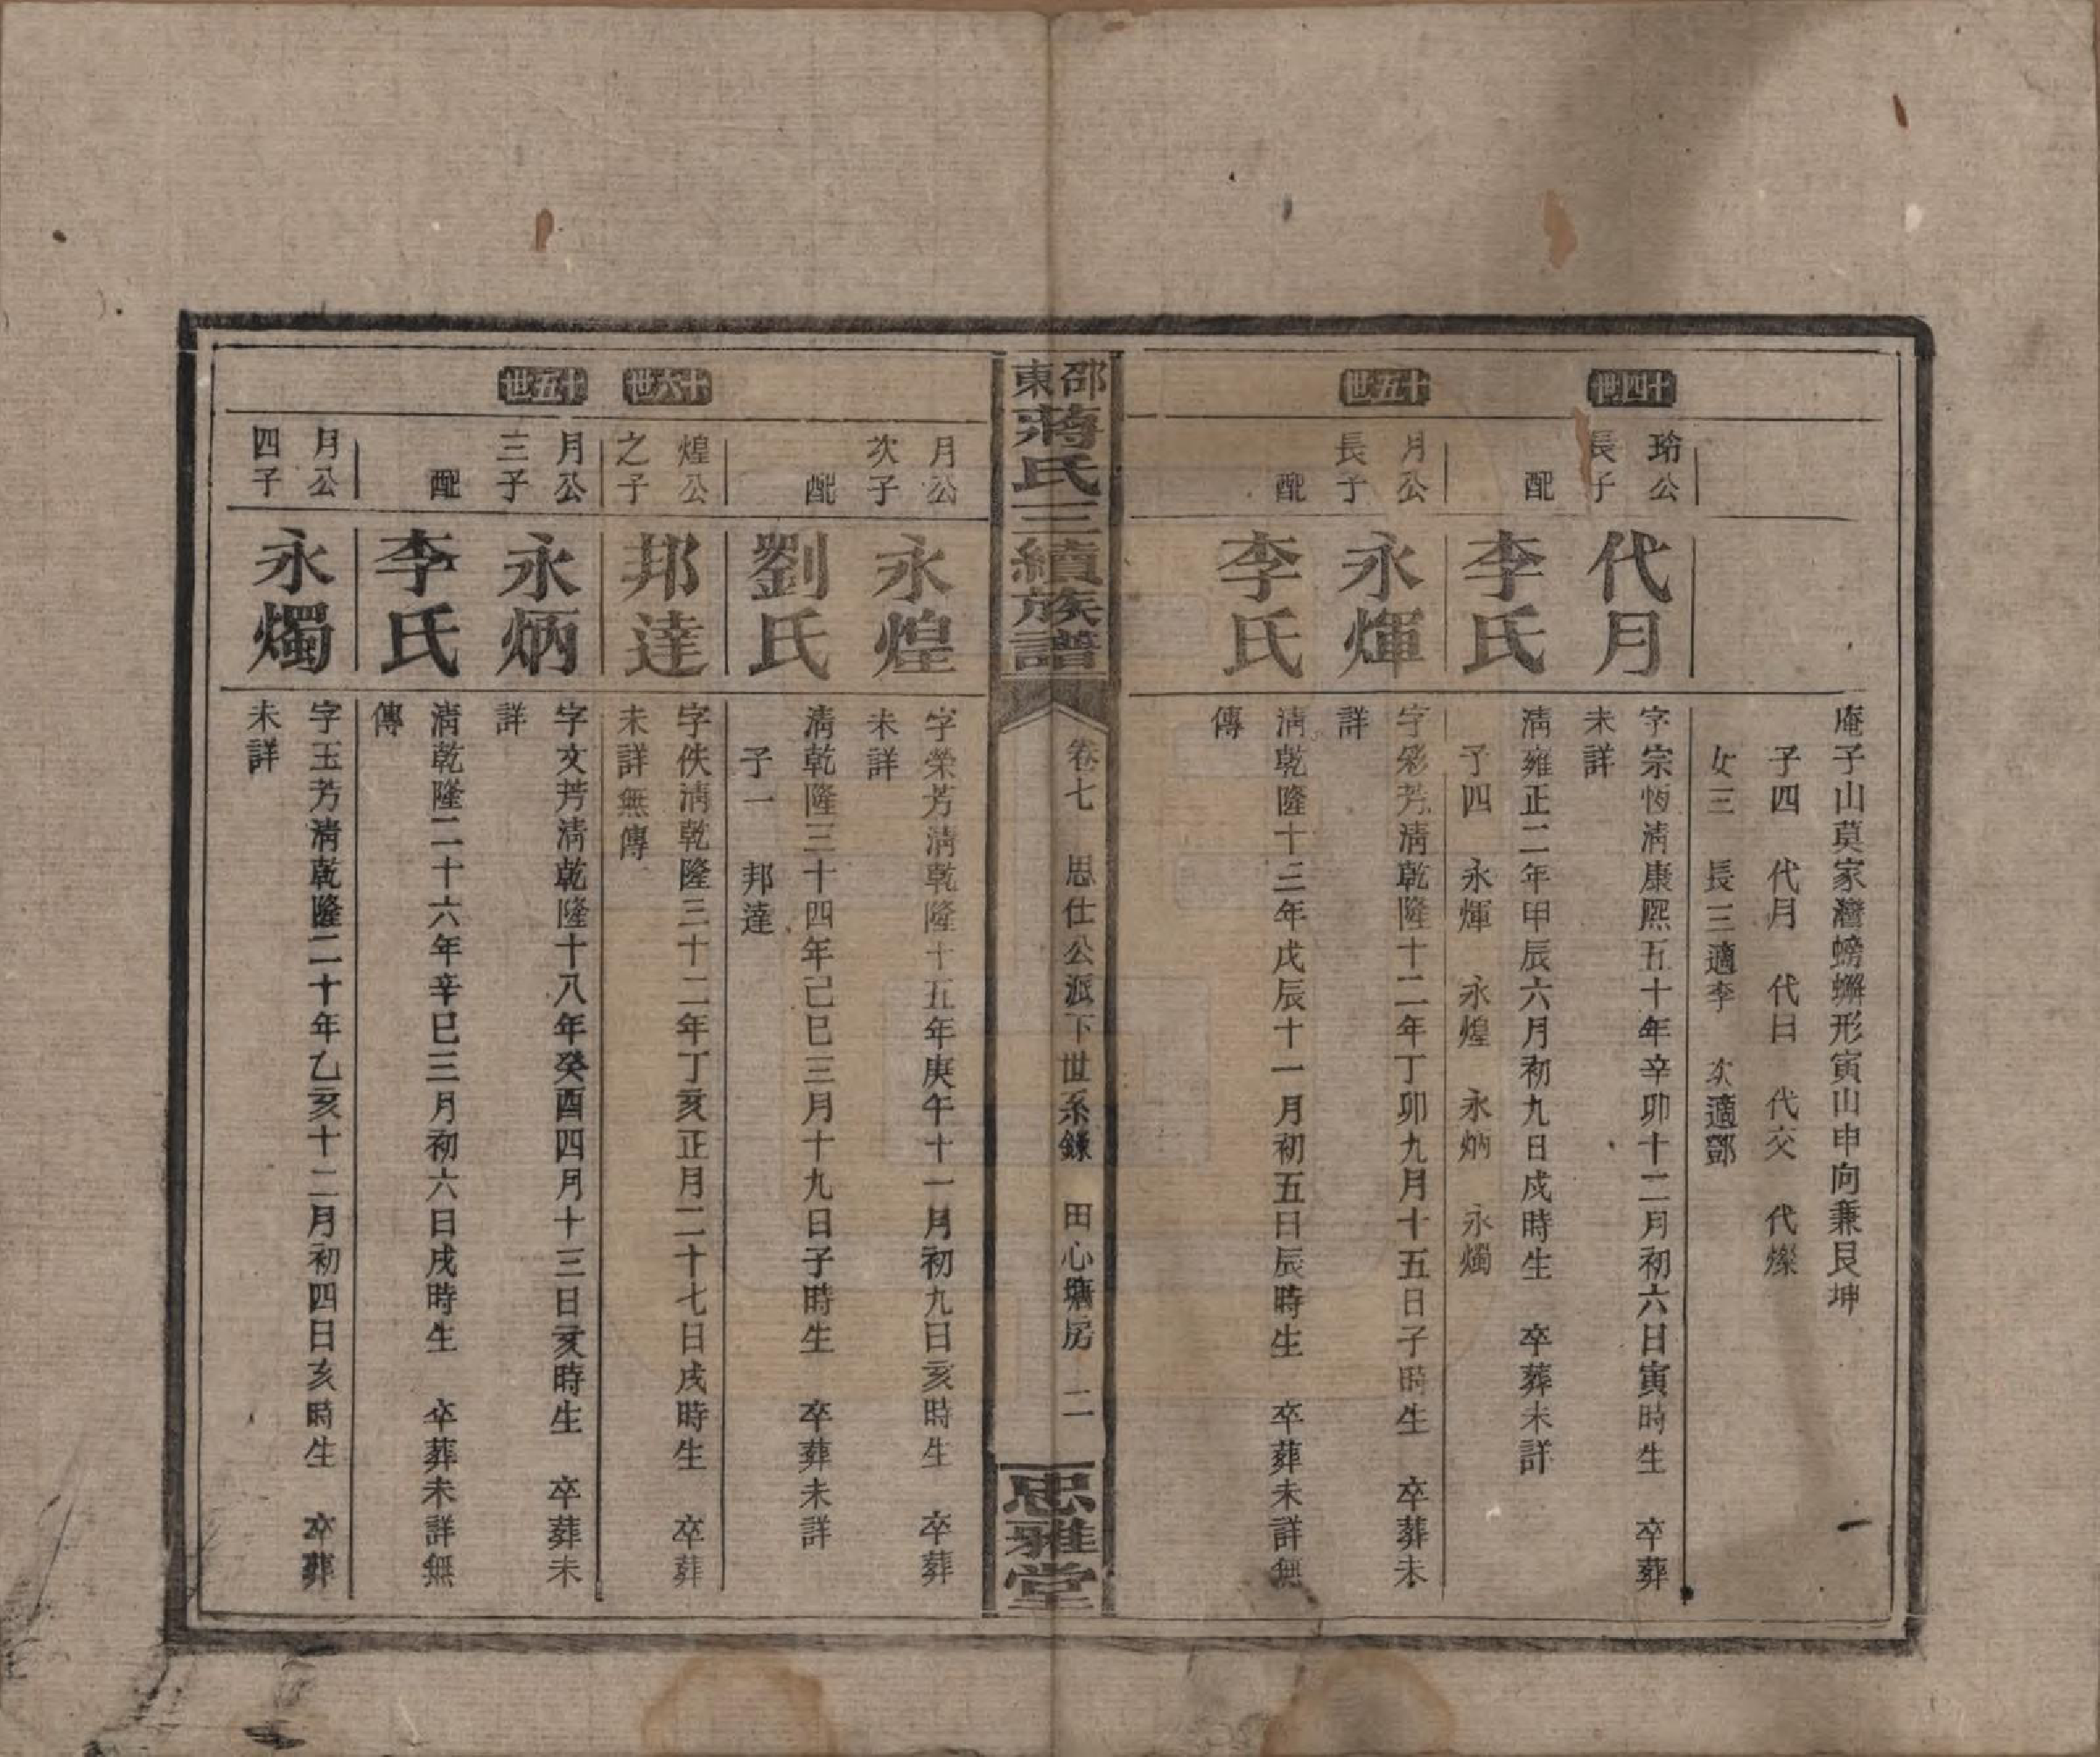 庵子山莫家灣螃蠏形寅山申向兼艮坤
子四　代月　代日　代交　代燦
女三　長三適李　次適鄧
十四世
瑜公
長子
代月
字宗恆清康熙五十年辛卯十二月初六日寅時生　卒葬
未詳
配
李氏
清雍正二年甲辰六月初九日戌時生　卒葬未詳
子四　永煇　永煌　永炳　永燭
十五世
月公
長子
永煇
字彩芳清乾隆十二年丁卯九月十五日子時生　卒葬未
詳
配
李氏
清乾隆十三年戊辰十一月初五日辰時生　卒葬未詳無
傳
邵東蔣氏三續族譜
卷七　思仕公派下世系錄　田心塘房　二
忠雅堂
月公
次子
永煌
字榮芳清乾隆十五年庚午十一月初九日亥時生　卒葬
未詳
配
劉氏
清乾隆三十四年己巳三月十九日子時生　卒葬未詳
子一　邦達
十六世
煌公
之子
邦達
字佚清乾隆三十二年丁亥正月二十七日戌時生　卒葬
未詳無傳
十五世
月公
三子
永炳
字文芳清乾隆十八年癸酉四月十三日亥時生　卒葬未
詳
配
李氏
清乾隆二十六年辛巳三月初六日戌時生　卒葬未詳無
傳
月公
四子
永燭
字玉芳清乾隆二十年乙亥十二月初四日亥時生　卒葬
未詳